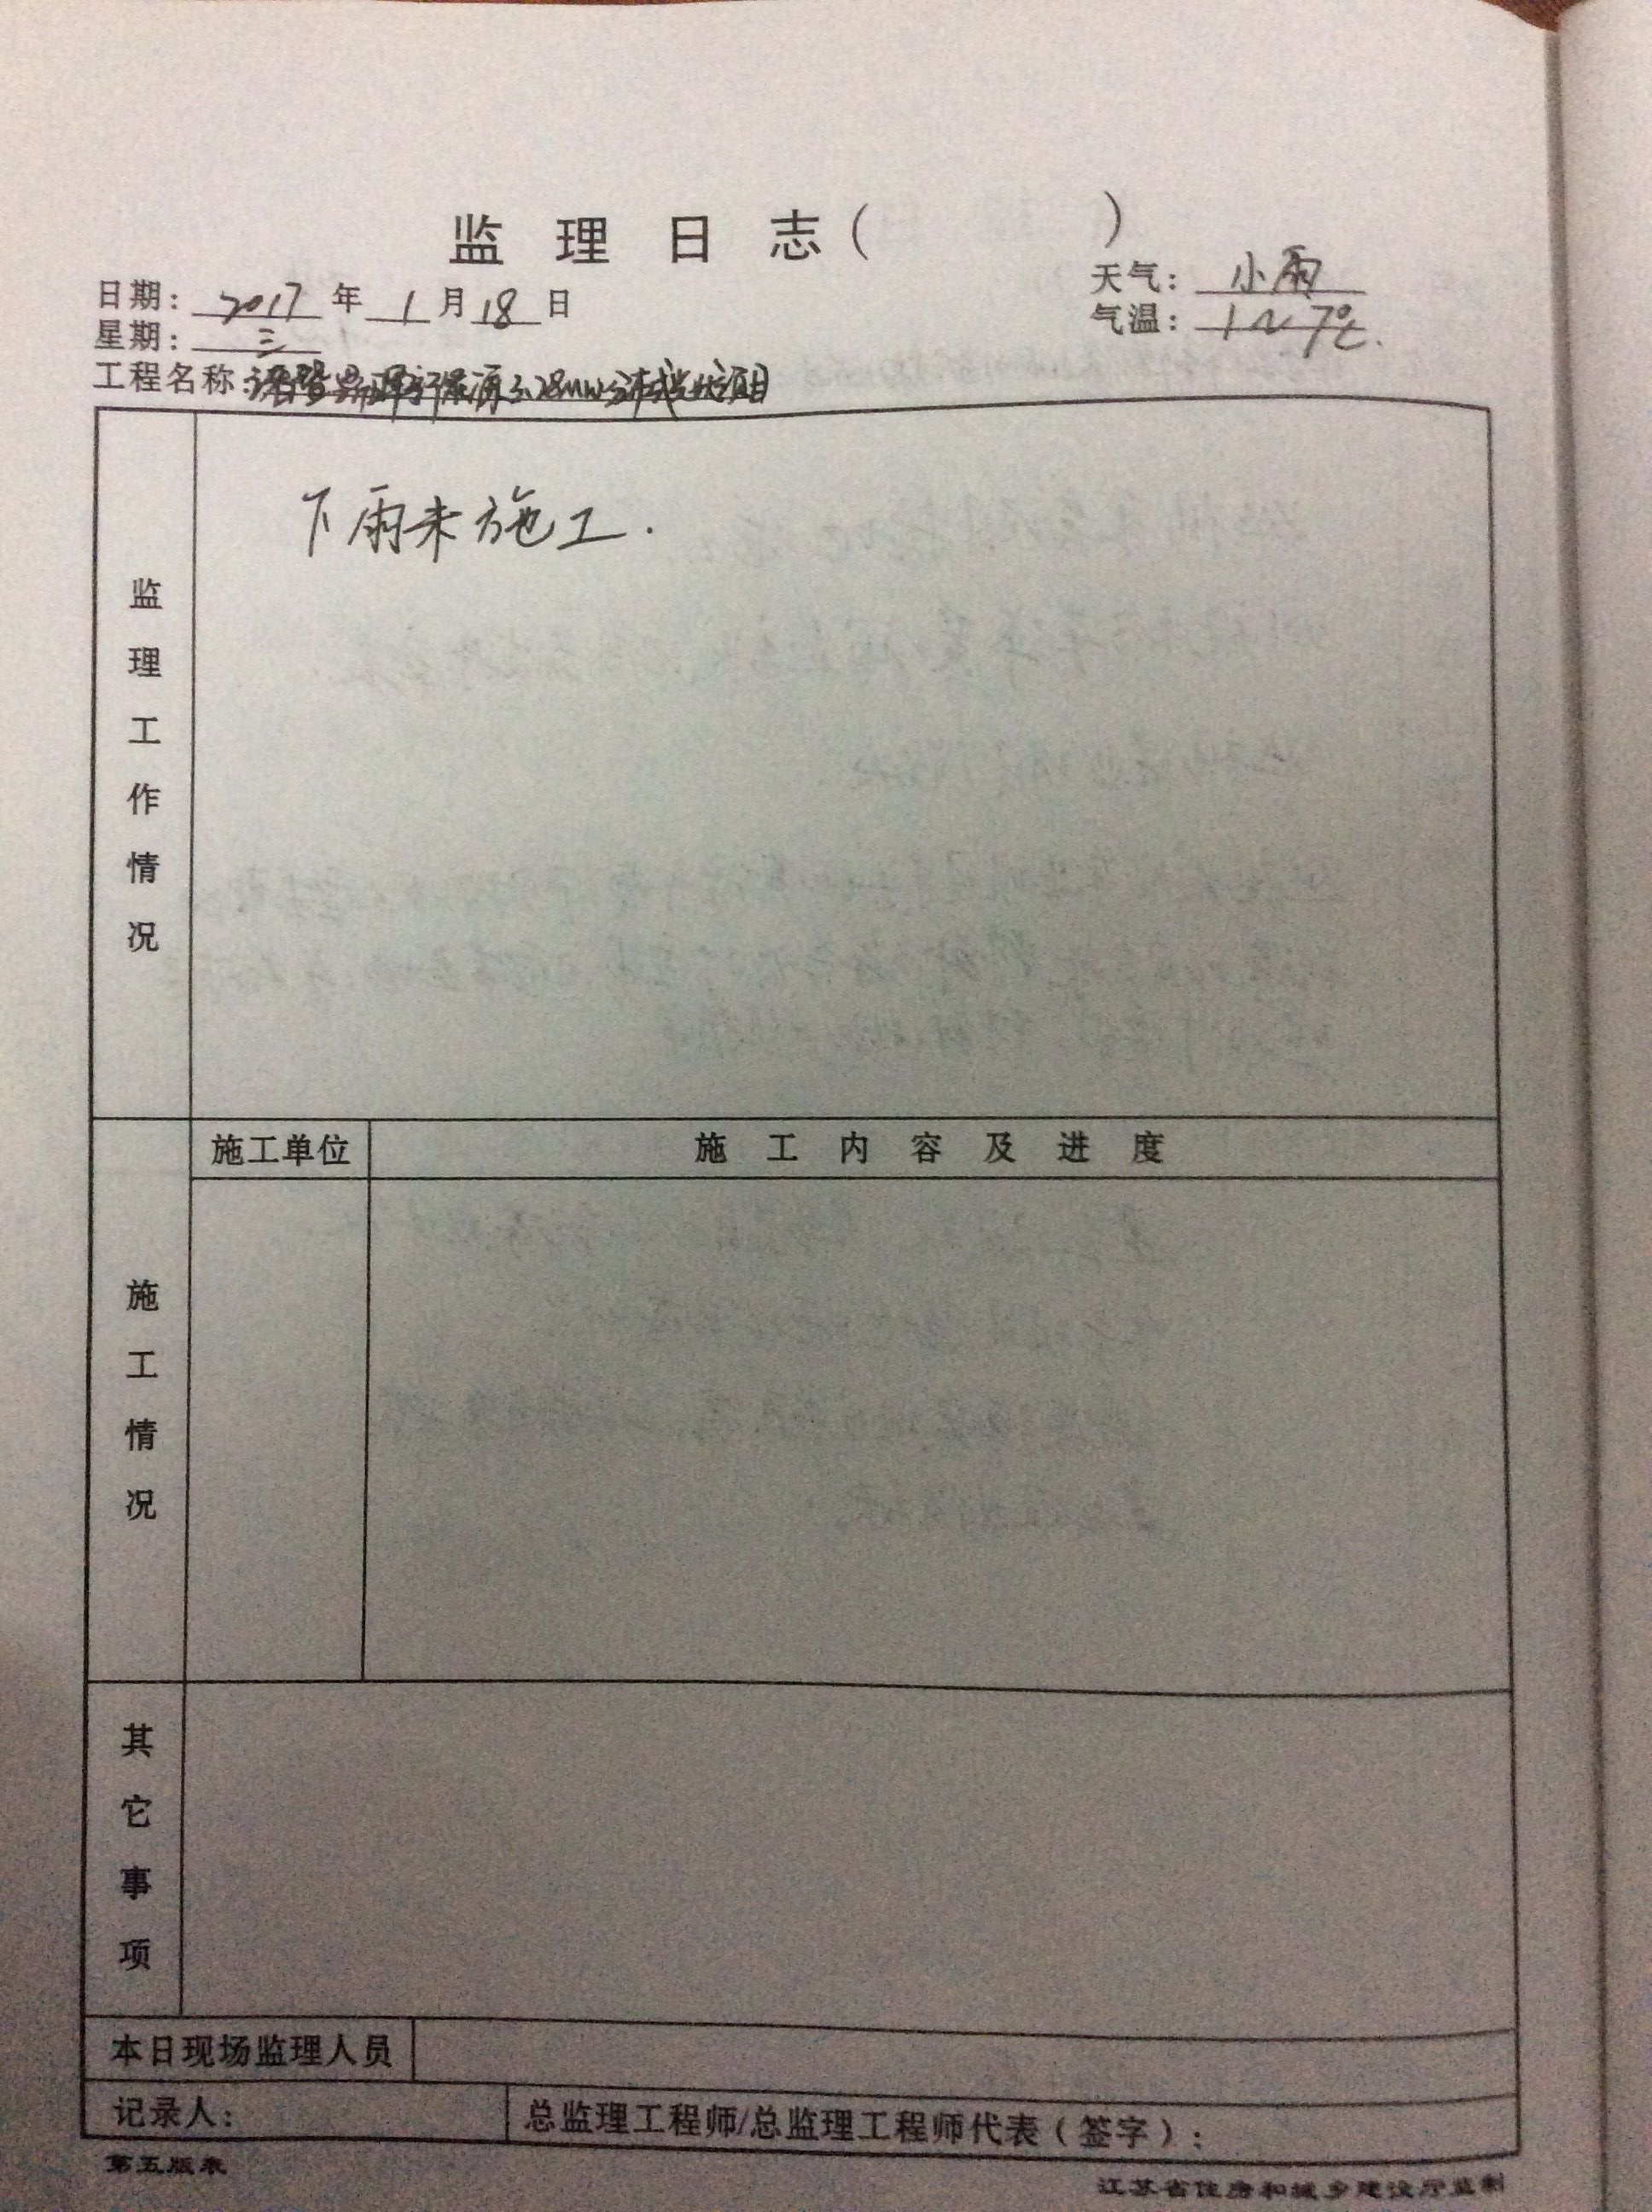 监理日志( )
日期: 2017 年 1 月 18 日
天气: 小雨
星期: 三
气温: 1~7℃.
工程名称: 新能源 分布式光伏项目
下雨未施工.
监理工作情况
施工单位
施工内容及进度
施工情况
其它事项
本日现场监理人员
记录人:
总监理工程师/总监理工程师代表(签字):
第五版表
江苏省住房和城乡建设厅监制